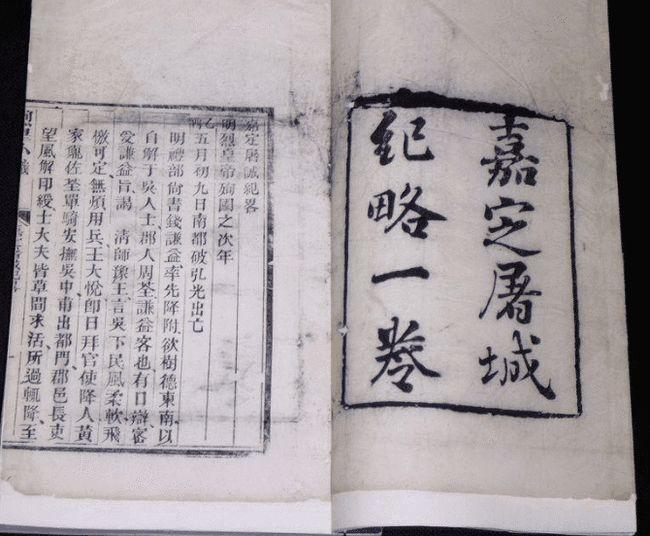 嘉定屠城
紀略一卷
嘉定屠城紀畧
明烈皇帝殉國之次年
乙酉五月初九日南都破弘光出亡
明禮部尚書錢謙益率先降附欲樹德東南以
自解于吳人士郡人周荃謙益客也有口辯密
受謙益旨謁 清師豫王言吳下民風柔軟飛
檄可定無煩用兵王大悅卽日拜官使降人黃
家鼐佐荃單騎安撫吳中甫出都門郡邑長吏
望風解印綬士大夫皆草間求活所過輒降至